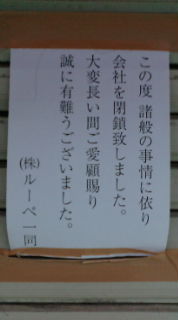 この度 諸般の事情に依り
会社を閉鎖致しました。
大変長い間ご愛顧賜り
誠に有難うございました。
(株)ルーペ一同